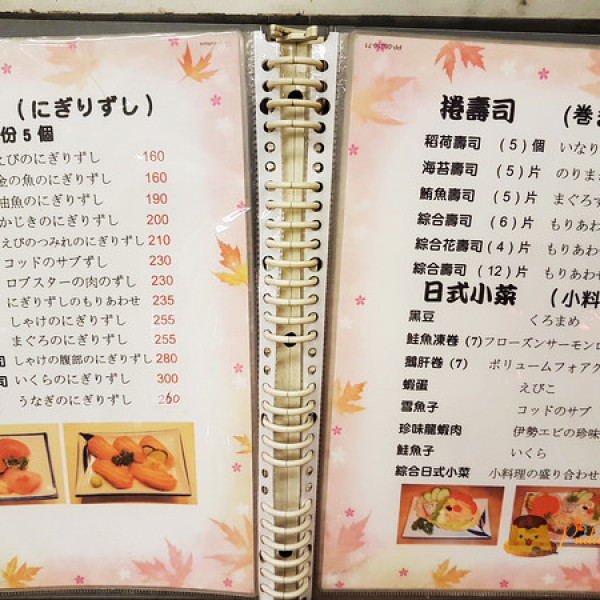 (にぎりずし)
份5個
えびのにぎりずし 160
金の魚のにぎりずし 160
油魚のにぎりずし 190
かじきのにぎりずし 200
えびのつみれのにぎりずし 210
コッドのサブずし 230
ロブスターの肉のずし 230
にぎりずしのもりあわせ 235
しゃけのにぎりずし 255
まぐろのにぎりずし 255
司 しゃけの腹部のにぎりずし 280
司 いくらのにぎりずし 300
うなぎのにぎりずし 260
捲壽司 (巻き
稻荷壽司 (5)個 いなり
海苔壽司 (5)片 のりま
鮪魚壽司 (5)片 まぐろす
綜合壽司 (6)片 もりあわ
綜合花壽司(4)片 もりあわ
綜合壽司 (12)片 もりあわせ
日式小菜 (小料
黑豆 くろまめ
鮭魚凍卷 (7)フローズンサーモンロ
鵝肝卷 (7) ボリュームフォアグ
蝦蛋 えびこ
雪魚子 コッドのサブ
珍味龍蝦肉 伊勢エビの珍味
鮭魚子 いくら
綜合日式小菜 小料理の盛り合わせ